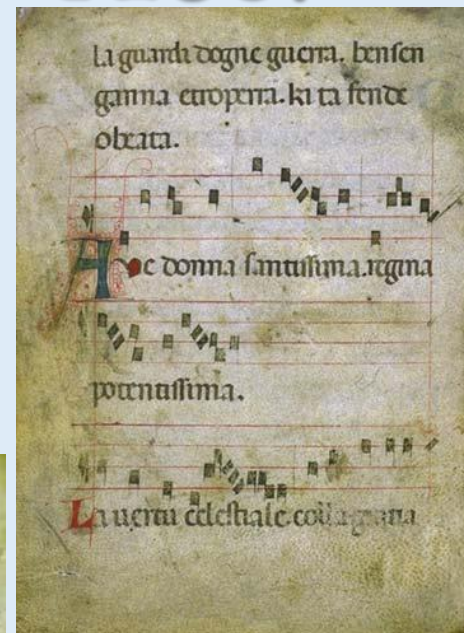 la guarda dogne guerra. bensen
ganna etroperra. ki ta fende
obeata.
Ave donna santissima. regina
potentissima.
La uertu celestiale. colla gratia